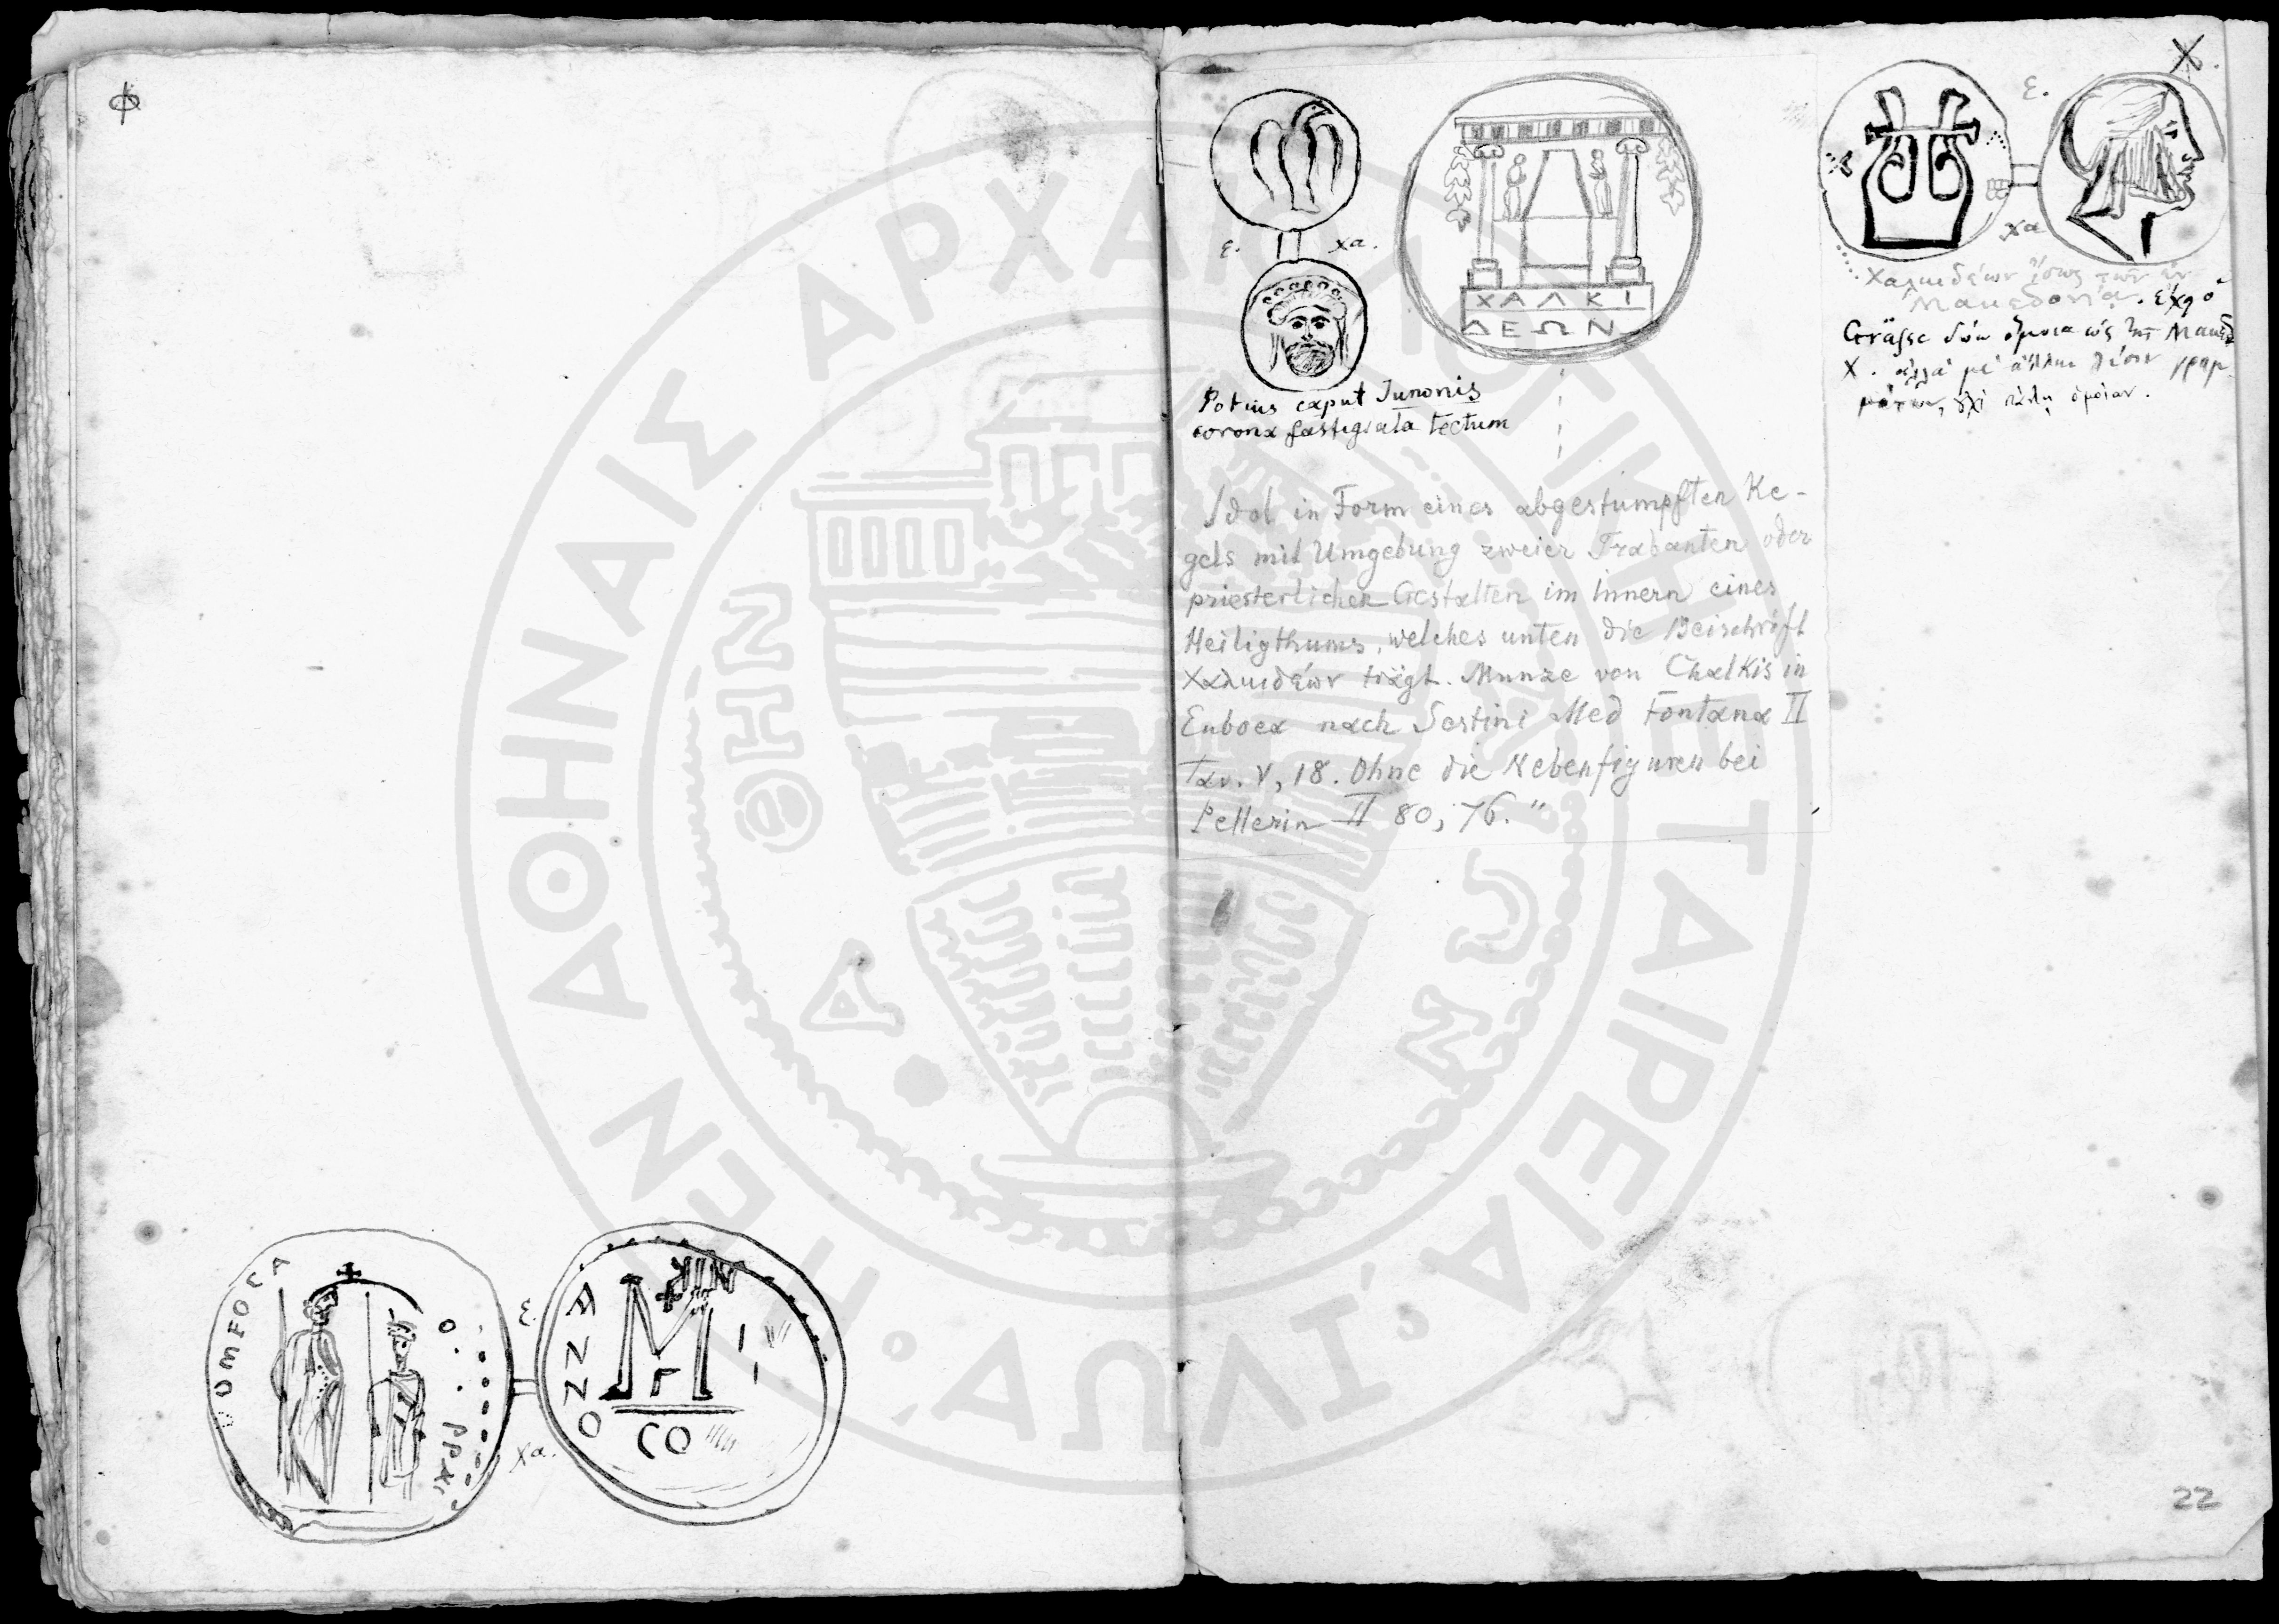 Φ
ΟΜFOCA
ε.
χα.
ANNO
M
Γ
CO
X.
ε.
χα.
ΧΑΛΚΙ
ΔΕΩΝ
Potius caput Junonis
corona fastigiata tectum
Idol in Form eines abgestumpften Ke-
gels mit Umgebung zweier Trabanten oder
priesterlichen Gestalten im Innern eines
Heiligthums, welches unten die Beischrift
Χαλκιδέων trägt. Munze von Chalkis in
Euboea nach Sestini Med Fontana II
Tav. V, 18. Ohne die Nebenfiguren bei
Pellerin II 80, 76."
ε.
χα
Χαλκιδέων ἴσως τῶν ἐν
Μακεδονίᾳ. ἔχει ὁ
ὅμοια ὡς τῆς Μακεδ
Χ. ἀλλὰ μὲ
22
ΕΝ ΑΘΗΝΑΙΣ ΑΡΧΑΙΟΛΟΓΙΚΗ ΕΤΑΙΡΕΙΑ